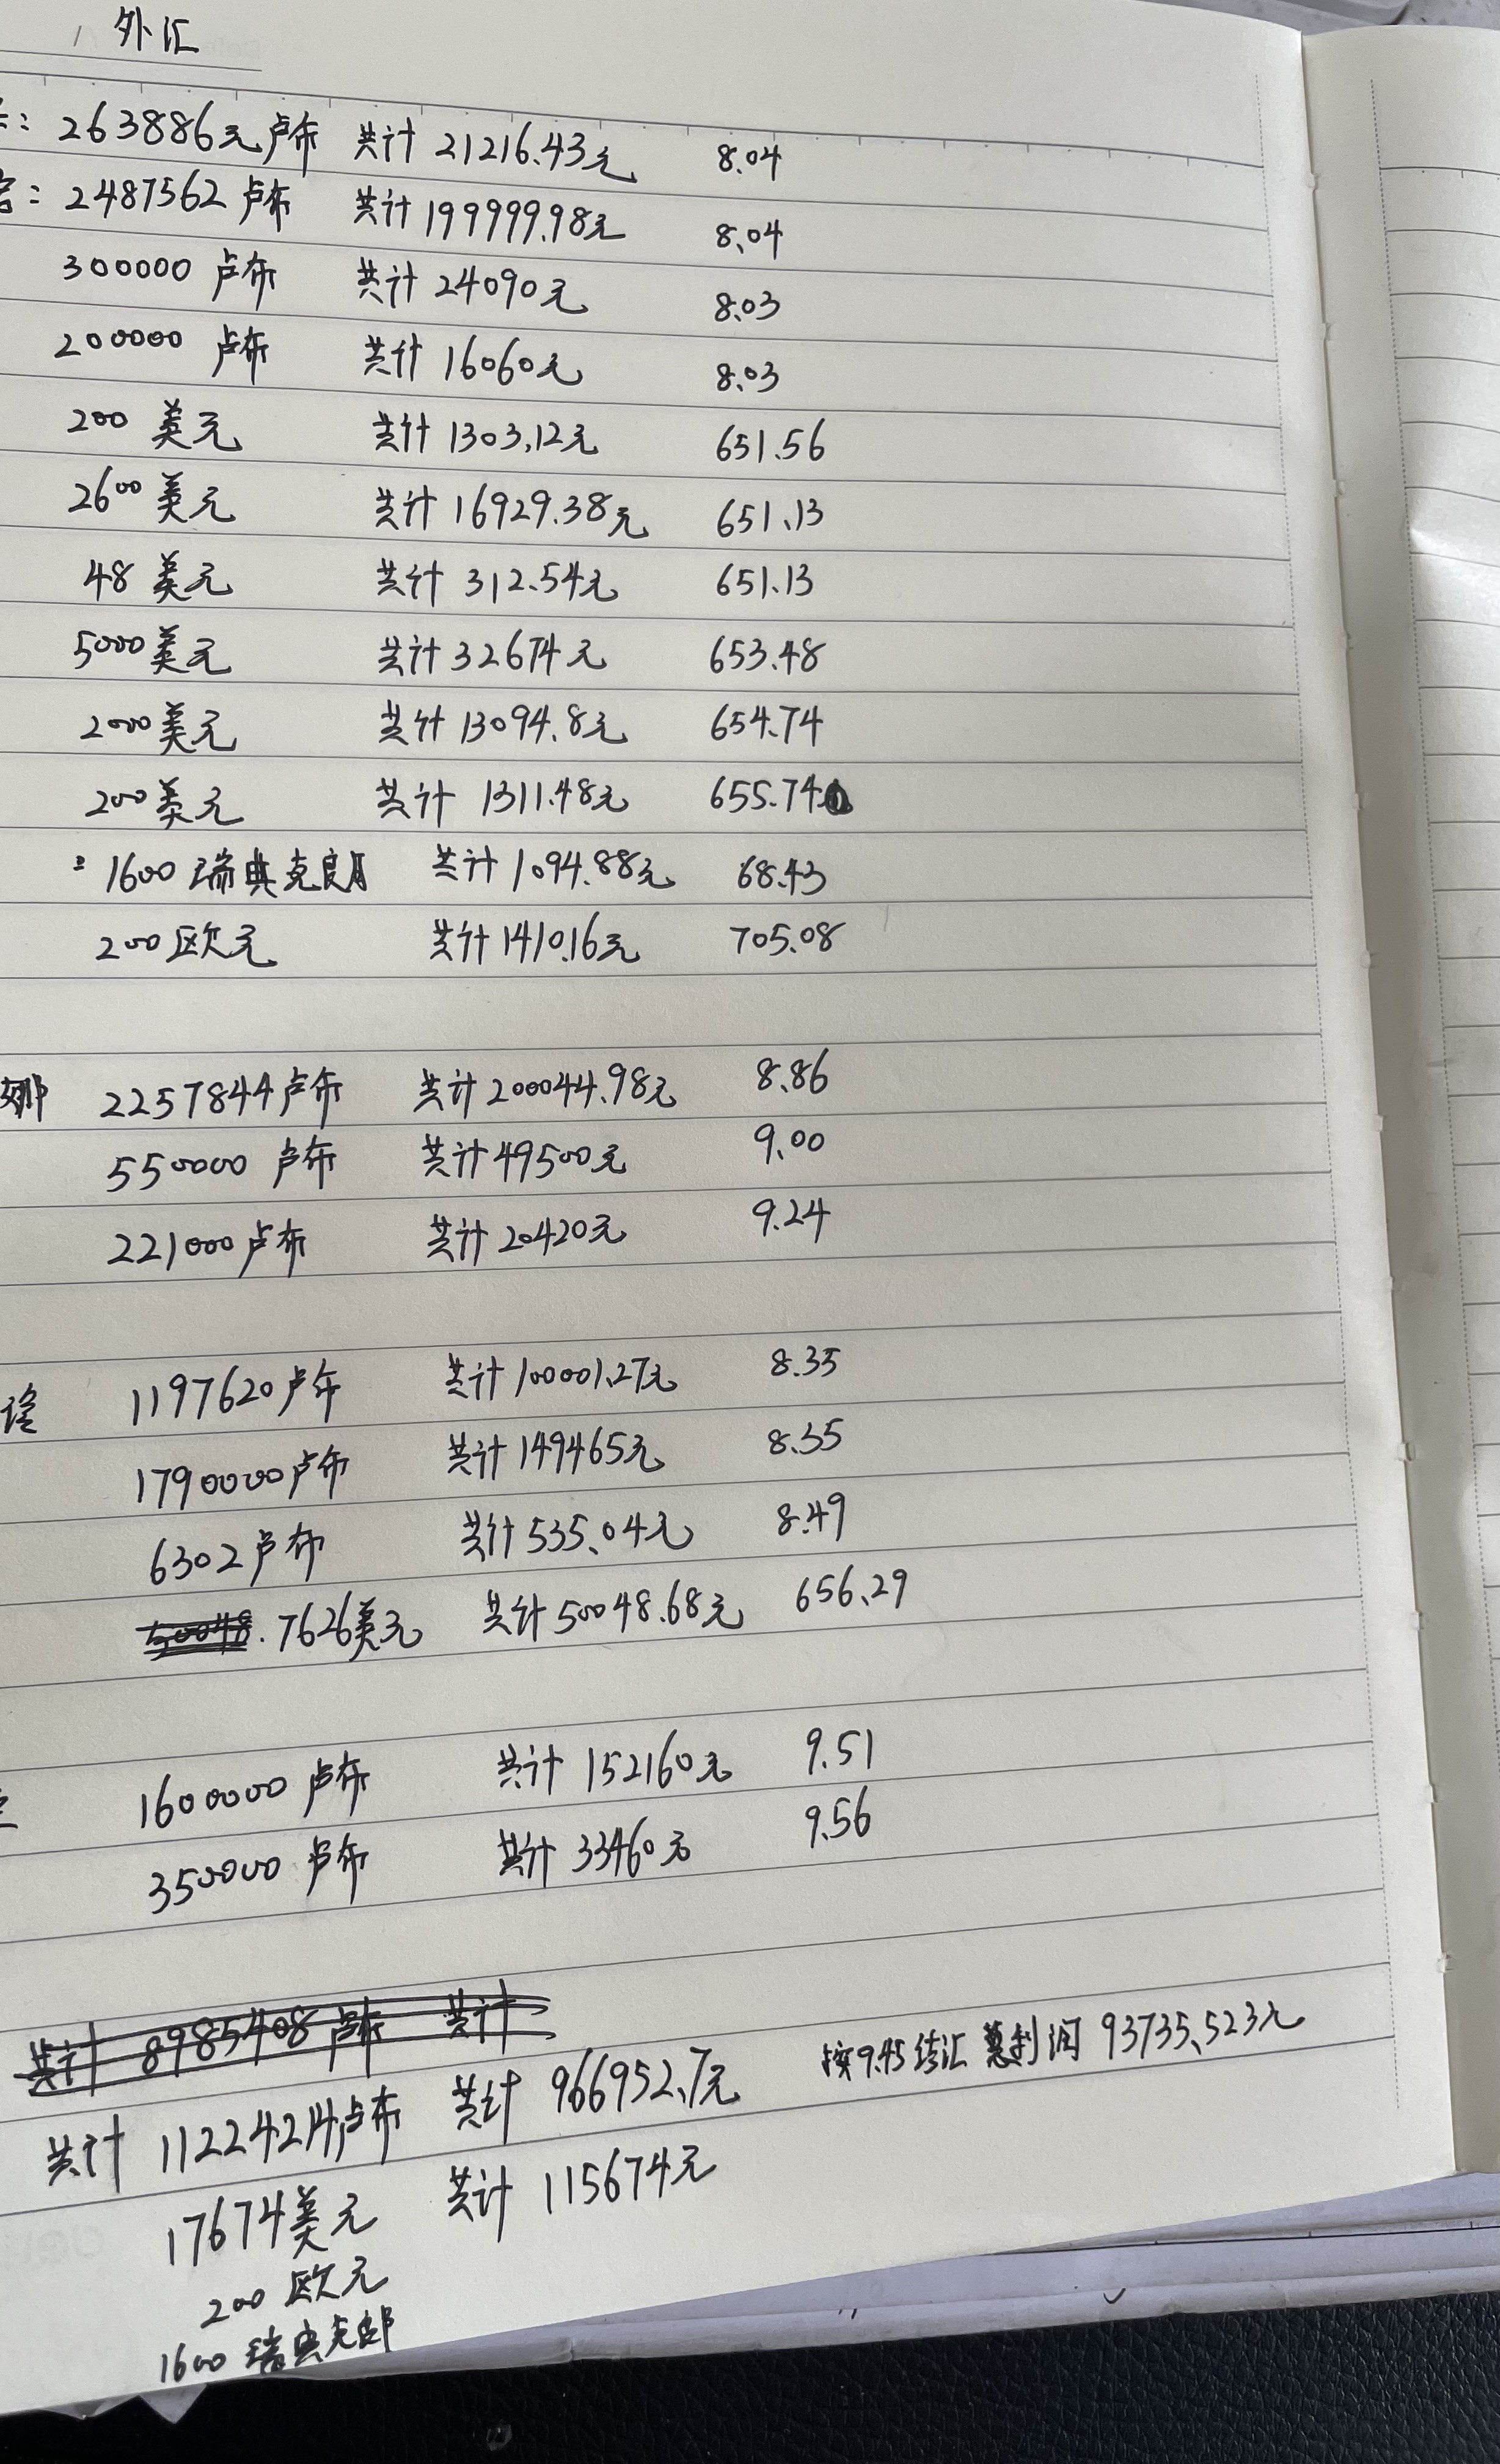 外汇
: 263886元卢布 共计 21216.43元 8.04
: 2487562 卢布 共计 199999.98元 8.04
300000 卢布 共计 24090元 8.03
200000 卢布 共计 16060元 8.03
200 美元 共计 1303.12元 651.56
2600 美元 共计 16929.38元 651.13
48 美元 共计 312.54元 651.13
5000美元 共计 32674元 653.48
2000美元 共计 13094.8元 654.74
200美元 共计 1311.48元 655.74
1600 瑞典克朗 共计 1094.88元 68.43
200欧元 共计 1410.16元 705.08
娜 2257844卢布 共计 200044.98元 8.86
550000 卢布 共计 49500元 9.00
221000卢布 共计 20420元 9.24
1197620卢布 共计 100001.27元 8.35
1790000卢布 共计 149465元 8.35
6302卢布 共计 535.04元 8.49
50048. 7626美元 共计 50048.68元 656.29
1600000 卢布 共计 152160元 9.51
350000 卢布 共计 33460元 9.56
共计 8985408 卢布 共计
共计 11224214卢布 共计 966952.7元 按9.45结汇 总利润 93735.523元
17674美元 共计 115674元
200 欧元
1600 瑞典克郎